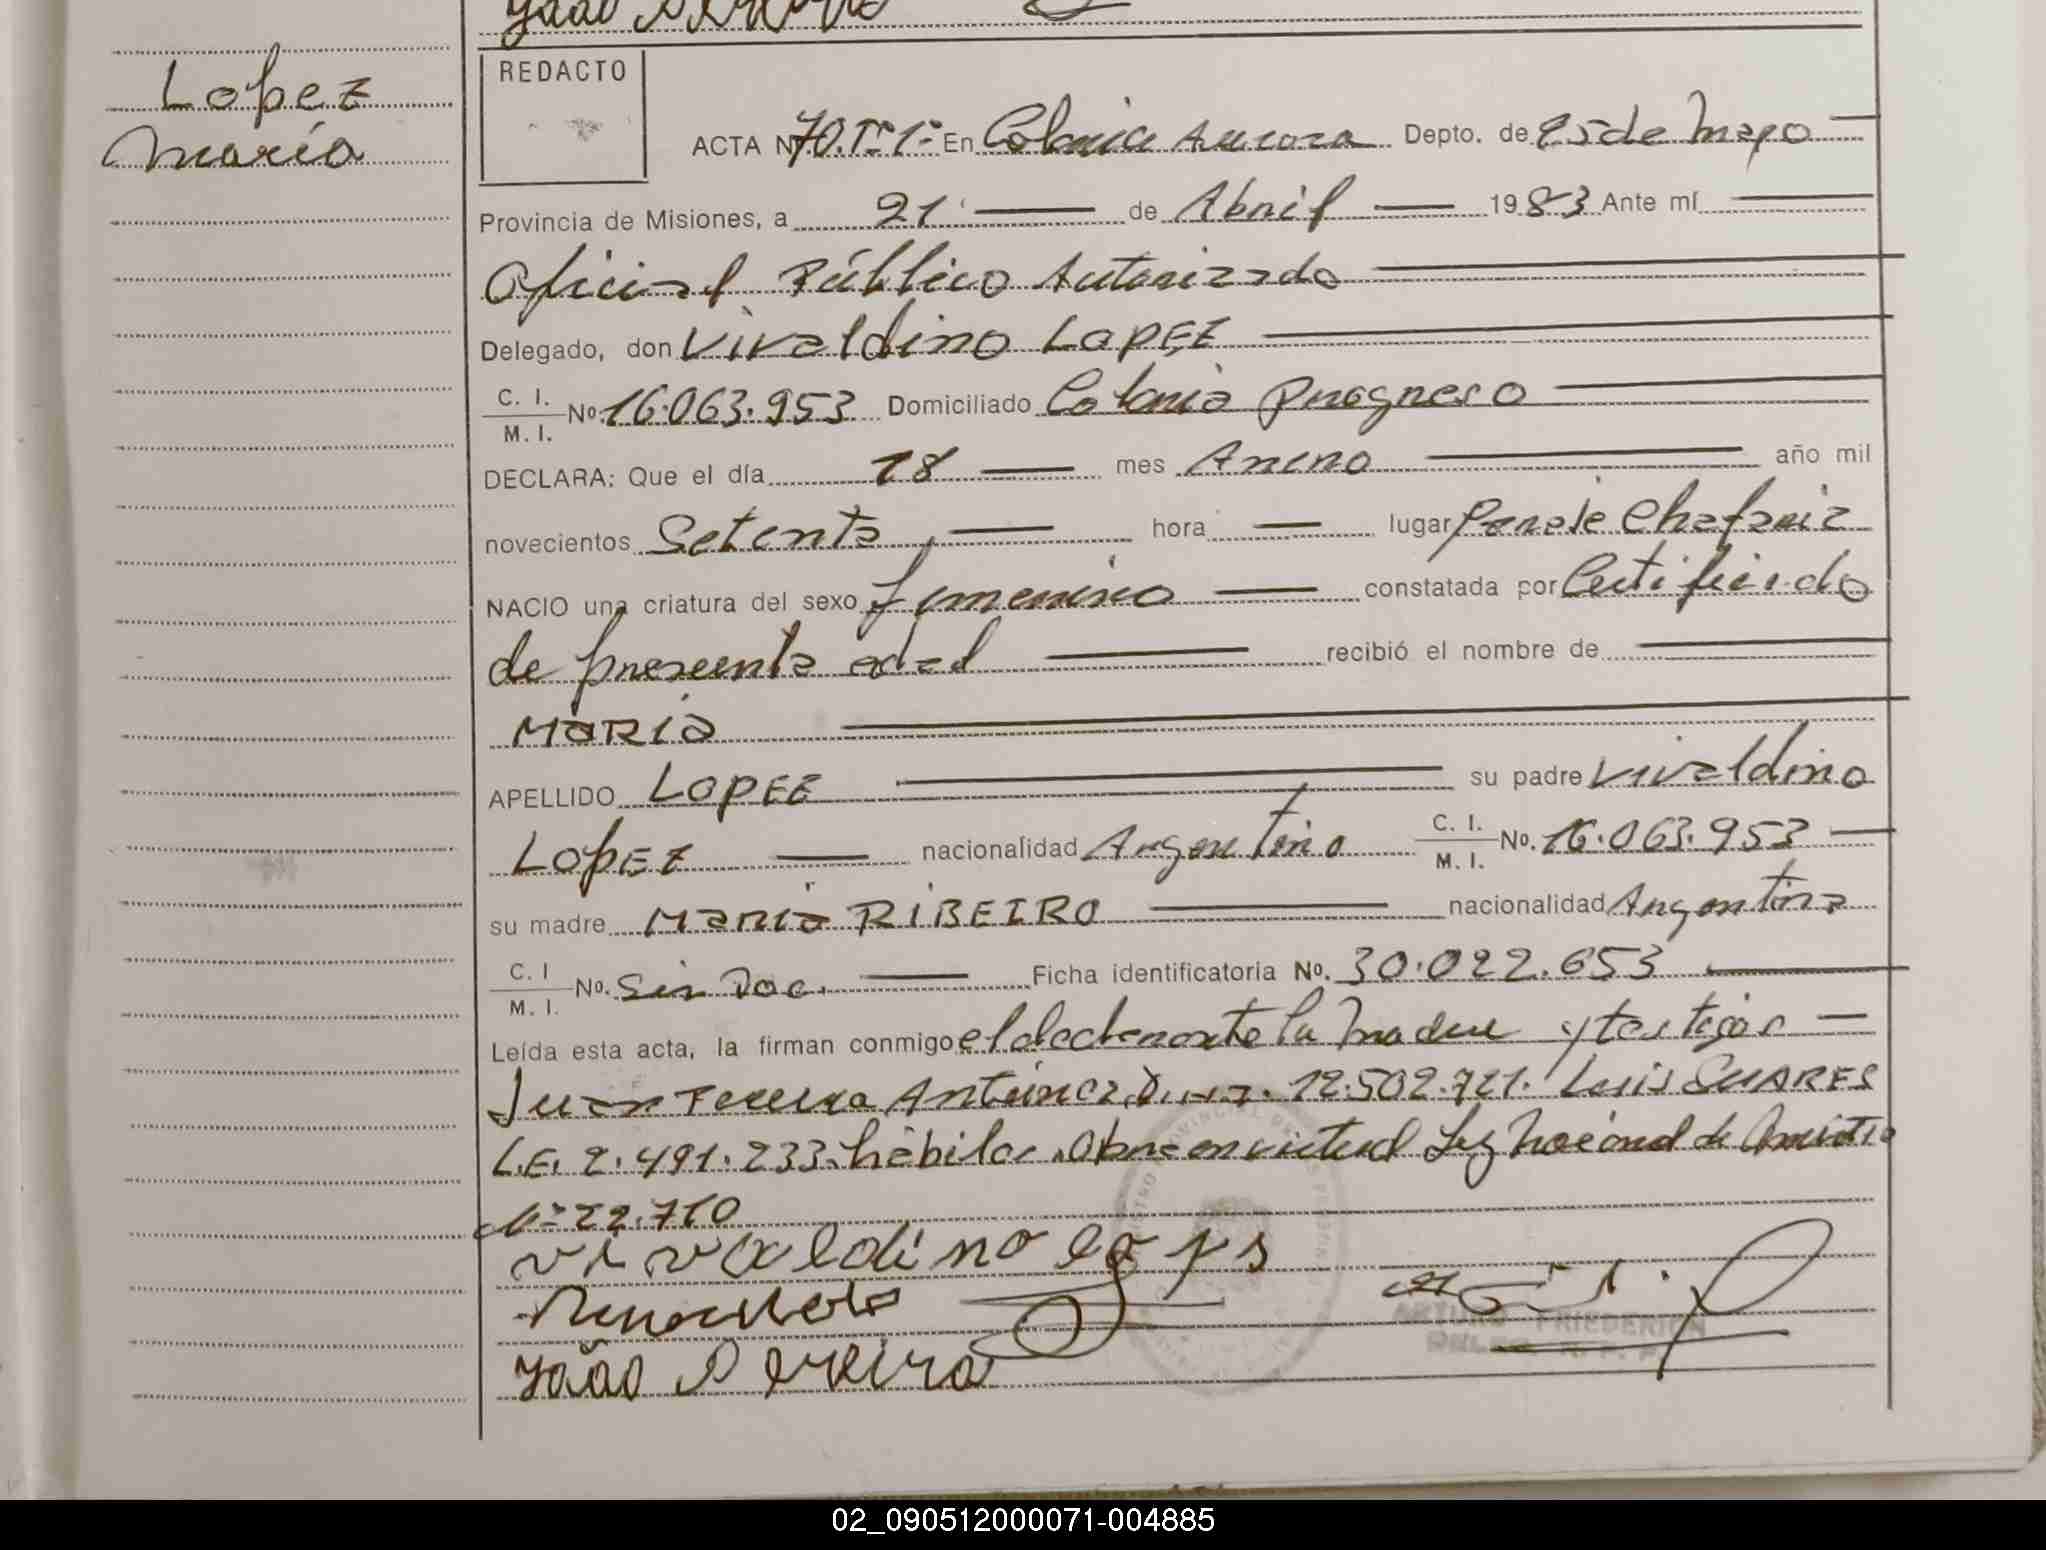 João Pereira
Lopez
María
REDACTO
ACTA Nº 70. Tº 1º En Colonia Aurora Depto. de 25 de Mayo
Provincia de Misiones, a 21 de Abril 1983 Ante mí
Oficial Público Autorizado
Delegado, don Vivaldino LOPEZ
C. I. M. I. No. 16.063.953 Domiciliado Colonia Progreso
DECLARA: Que el día 18 mes Enero año mil
novecientos Setenta hora lugar Paraje Chafariz
NACIO una criatura del sexo femenino constatada por Certificado
de presunta edad recibió el nombre de
MARIA
APELLIDO LOPEZ su padre Vivaldino
LOPEZ nacionalidad Argentino C. I. M. I. No. 16.063.953
su madre Maria RIBEIRO nacionalidad Argentina
C. I M. I. No. Sin Doc. Ficha identificatoria No. 30.022.653
Leída esta acta, la firman conmigo el declarante la madre y testigos
Juan Ferreira Antunez D.N.I. 12.502.721. Luis SUARES
L.E. 2.491.233. hábiles. Obra en virtud Ley Nacional de Amnistia
Nº 22.710
vivaldino lopes
João Pereira
ARTURO FRIEDERICH
02_090512000071-004885